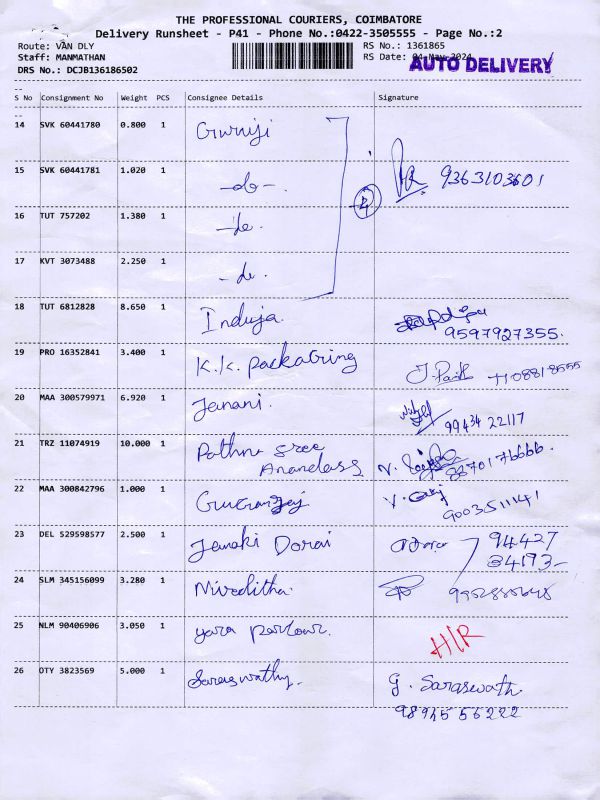 THE PROFESSIONAL COURIERS, COIMBATORE
Delivery Runsheet - P41 - Phone No.:0422-3505555 - Page No.:2
Route: VAN DLY
RS No.: 1361865
Staff: MANMATHAN
RS Date: 04-May-2024
AUTO DELIVERY
DRS No.: DCJB136186502
S No Consignment No Weight PCS Consignee Details Signature
14 SVK 60441780 0.800 1 Guruji
15 SVK 60441781 1.020 1 -do-. 9363103601
16 TUT 757202 1.380 1 -do.
17 KVT 3073488 2.250 1 -do.
18 TUT 6812828 8.650 1 Induja.
9597927355.
19 PRO 16352841 3.400 1 K.K. Packabring
20 MAA 300579971 6.920 1 Janani.
99434 22117
21 TRZ 11074919 10.000 1 Pathra sree
Anandass
22 MAA 300842796 1.000 1
9003511141
23 DEL 529598577 2.500 1 Janaki Dorai 94427
84193-
24 SLM 345156099 3.280 1 Nivedithа.
25 NLM 90406906 3.050 1 yara parlour. H/R
26 OTY 3823569 5.000 1 Saraswathy. G. Saraswath
98945 56222